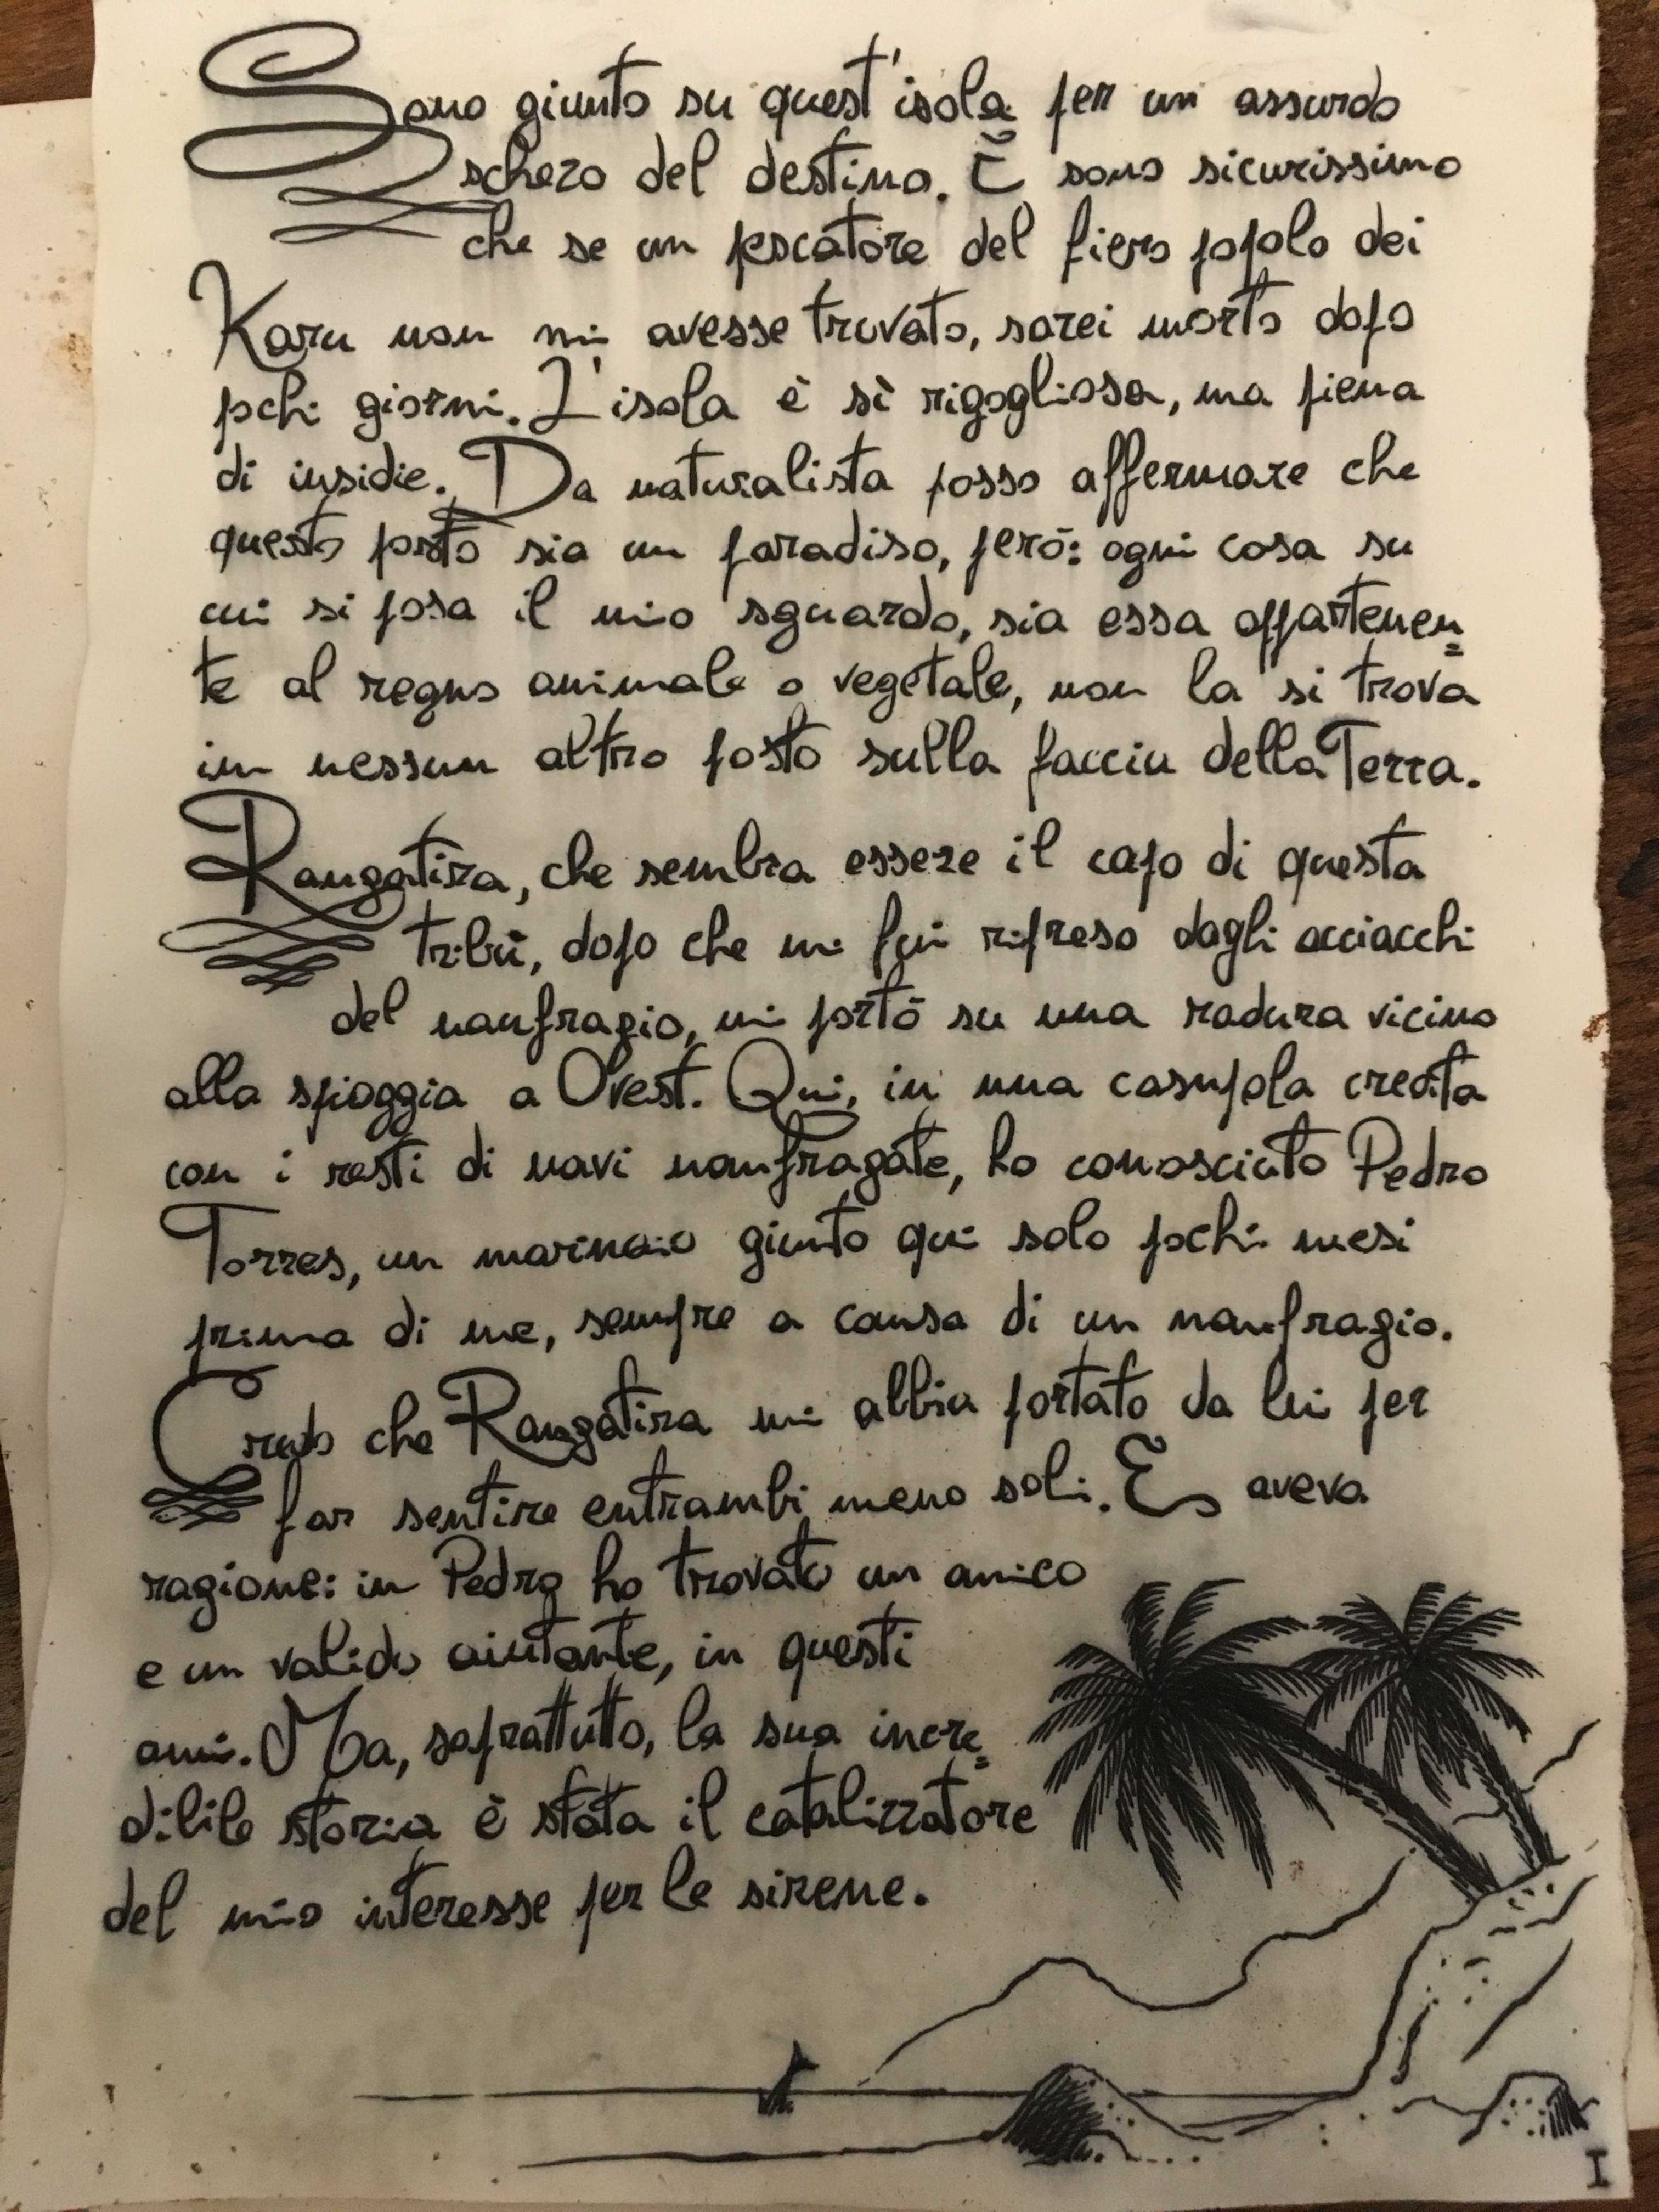 Sono giunto su quest'isola per un assurdo
scherzo del destino. E sono sicurissimo
che se un pescatore del fiero popolo dei
Karu non mi avesse trovato, sarei morto dopo
pochi giorni. L'isola è sì rigogliosa, ma piena
di insidie. Da naturalista posso affermare che
questo posto sia un paradiso, però: ogni cosa su
cui si posa il mio sguardo, sia essa appartenen=
te al regno animale o vegetale, non la si trova
in nessun altro posto sulla faccia della Terra.
Rangatira, che sembra essere il capo di questa
tribù, dopo che mi fui ripreso dagli acciacchi
del naufragio, mi portò su una radura vicino
alla spiaggia a Ovest. Qui, in una casupola creata
con i resti di navi naufragate, ho conosciuto Pedro
Torres, un marinaio giunto qui solo pochi mesi
prima di me, sempre a causa di un naufragio.
Credo che Rangatira mi abbia portato da lui per
far sentire entrambi meno soli. E aveva
ragione: in Pedro ho trovato un amico
e un valido aiutante, in questi
anni. Ma, soprattutto, la sua incre=
dibile storia è stata il catalizzatore
del mio interesse per le sirene.
I